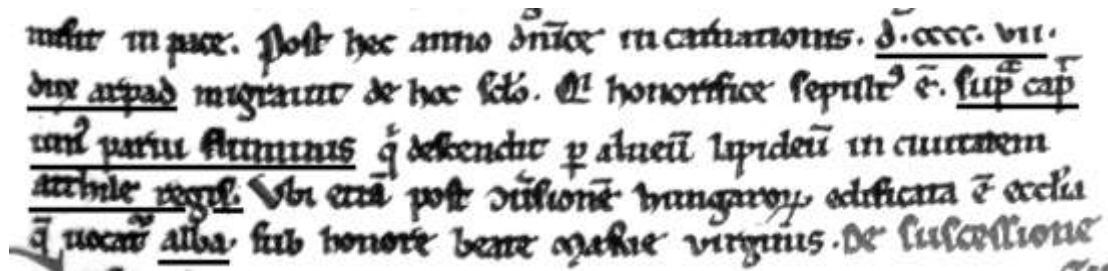 mſit in pace. Poſt hoc anno dn̄ice incarnationis. d̄.cccc.vii.
dux arpad migrauit de hoc ſclo. Qͥ honorifice ſepultꝰ ē. ſupᵃ cap̄
uniꝰ parui fluminis qͥ deſcendit ꝑ alueū lapideū in ciuitatem
atthile regiſ. Vbi etiā poſt ↄuſionē hungaroꝝ edificata ē eccl̄ia
q̄ uocatᷣ alba. ſub honore beate marie virginis. De ſuſceſſione